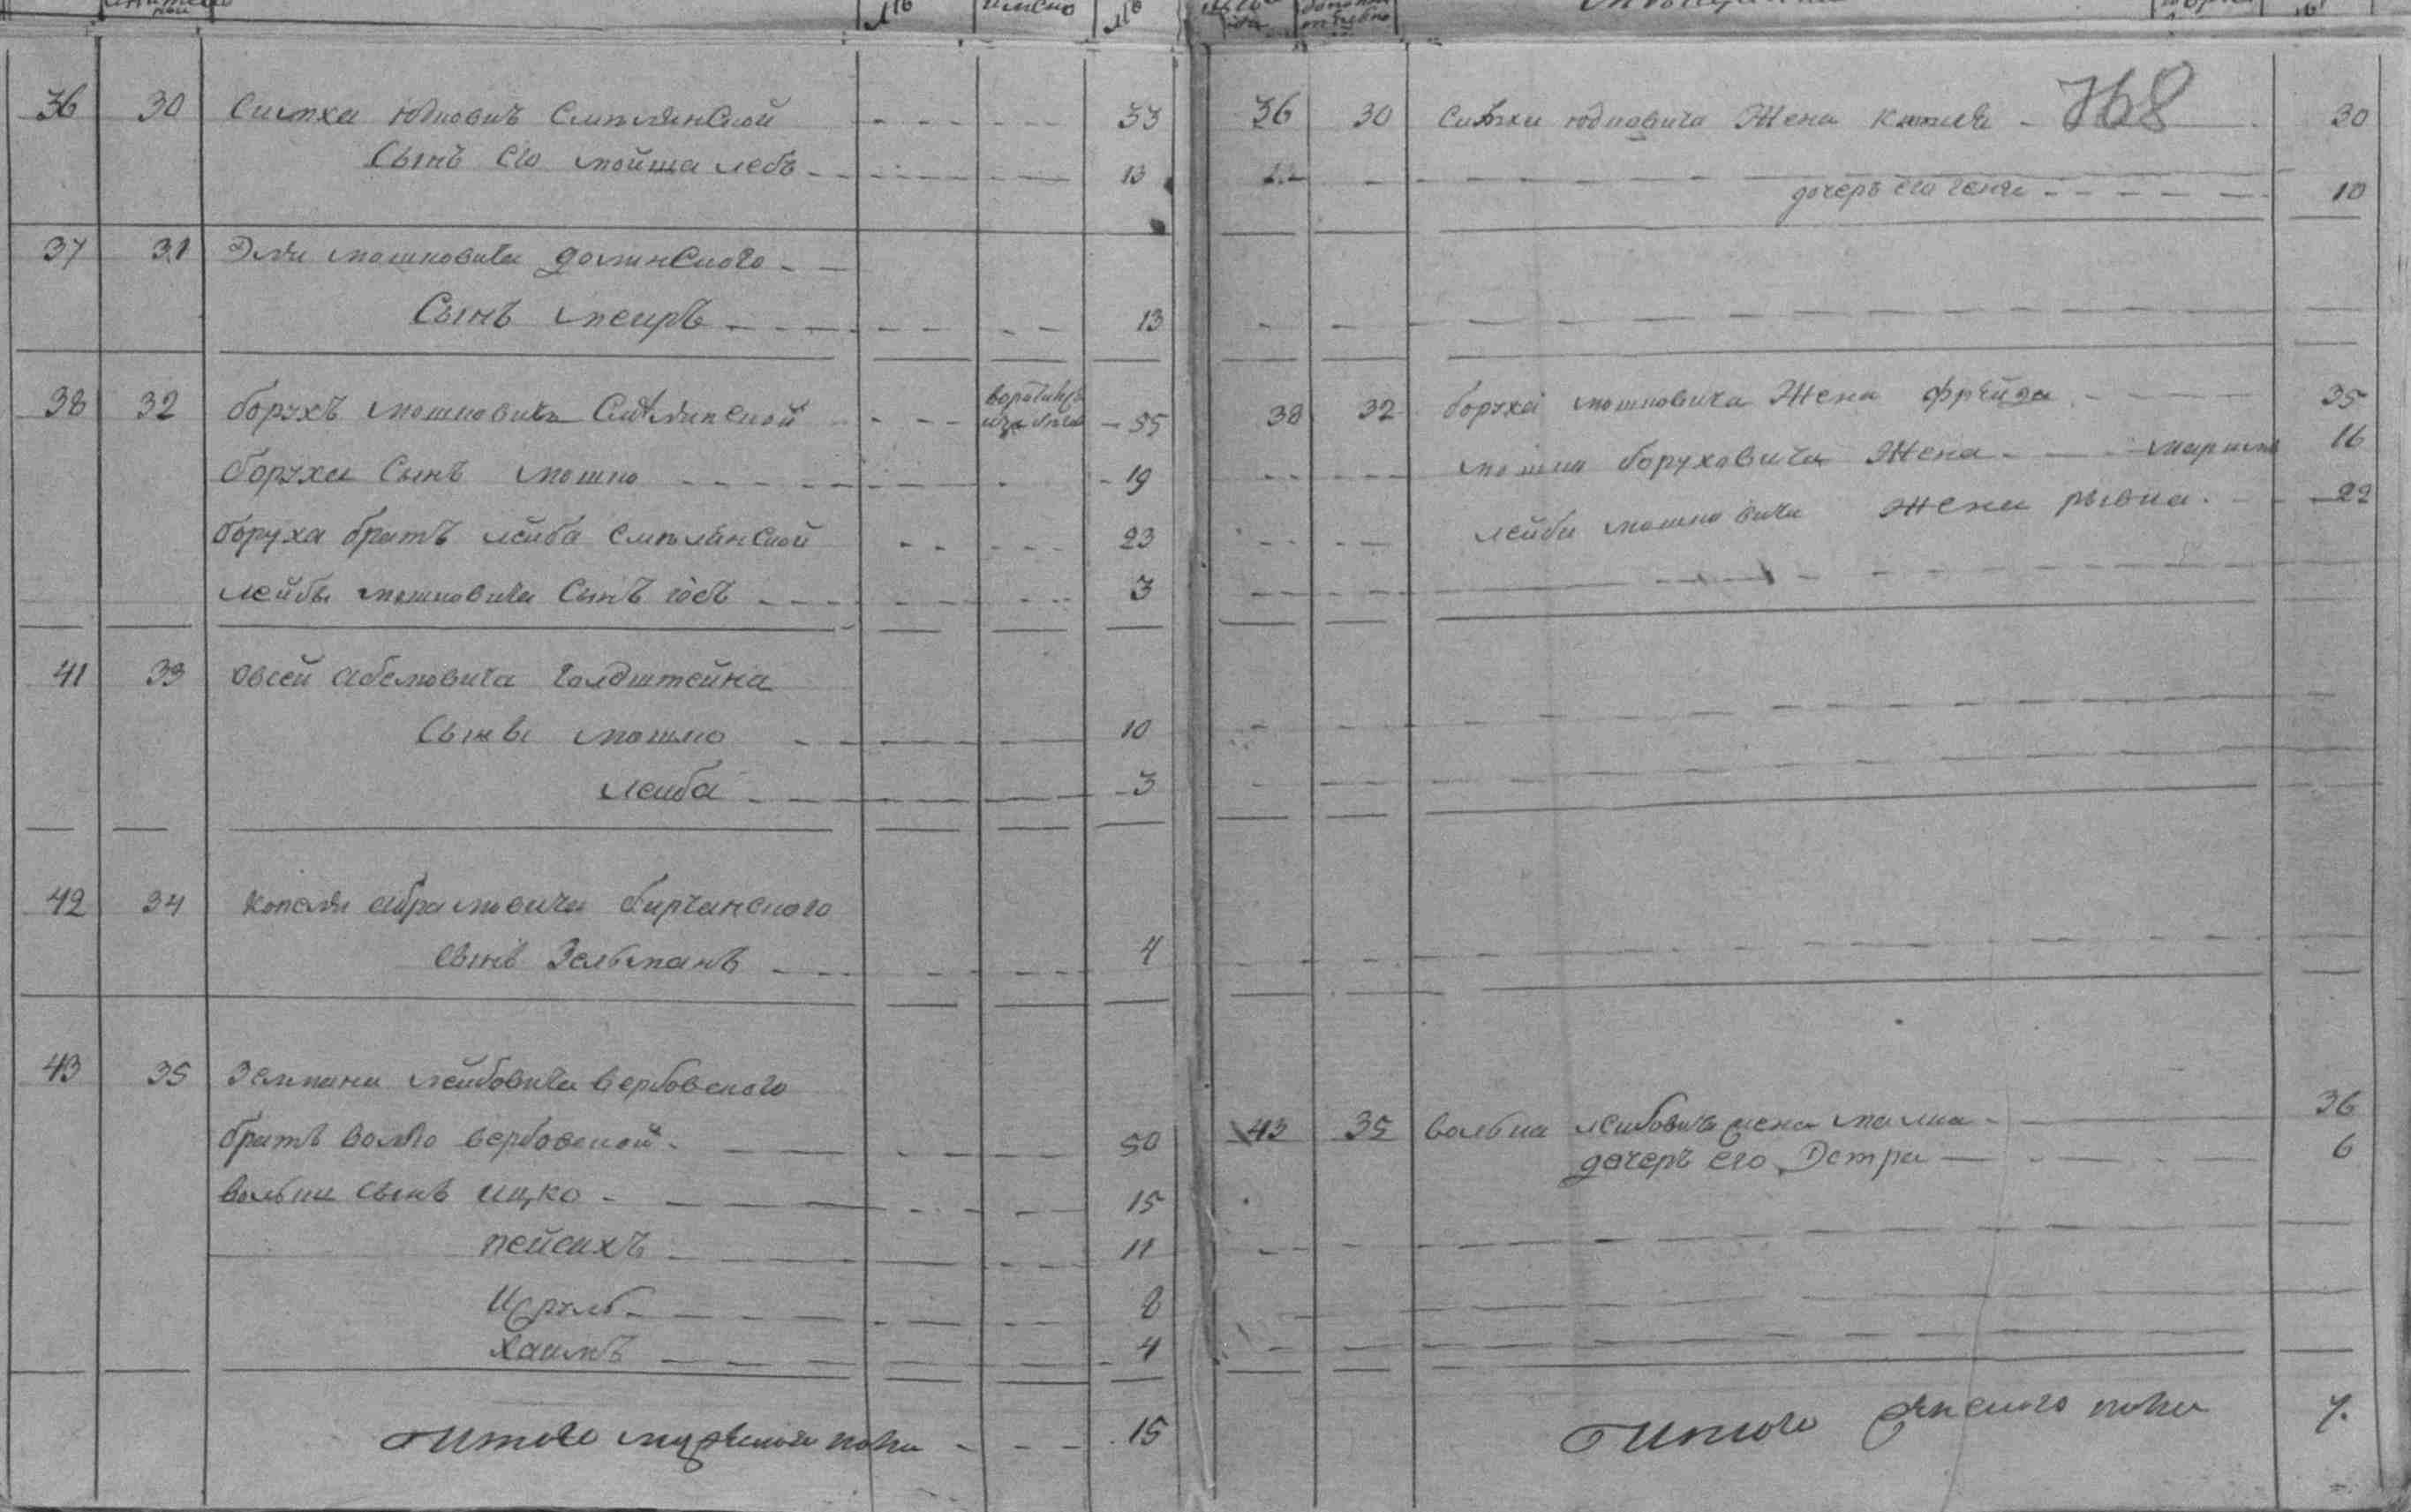 768
36 30 Симха Юдковичъ Смилянской 33
Сынъ его мойша лебъ 13
37 31 Эли мошковича долинского
Сынъ меиръ 13
38 32 борухъ мошковичъ Смилянской 55
боруха Сынъ мошко 19
боруха братъ лейба Смилянской 23
лейбы мошковича Сынъ 3
41 33 Овсей Абелювича голдштейна
Сынъ мошко 10
леиба 3
42 34 Копеля абрамовича бирчанского
Сынъ Зельманъ 4
43 35 Зелмана лейбовича вербовского
братъ волко вербовской 50
волька сынъ ицко 15
пейсахъ 11
Исруль 8
хаимъ 4
Итого мужеска пола 15
36 30 Симхи юдковича Жена 30
дочеръ его геня 10
38 32 боруха мошковича Жена фрейда 35
мошки боруховича Жена 16
лейби мошковича жена рывка 22
43 35 волька лейбовичъ жена малка 36
дочеръ его Естра 6
Итого женского пола 7.